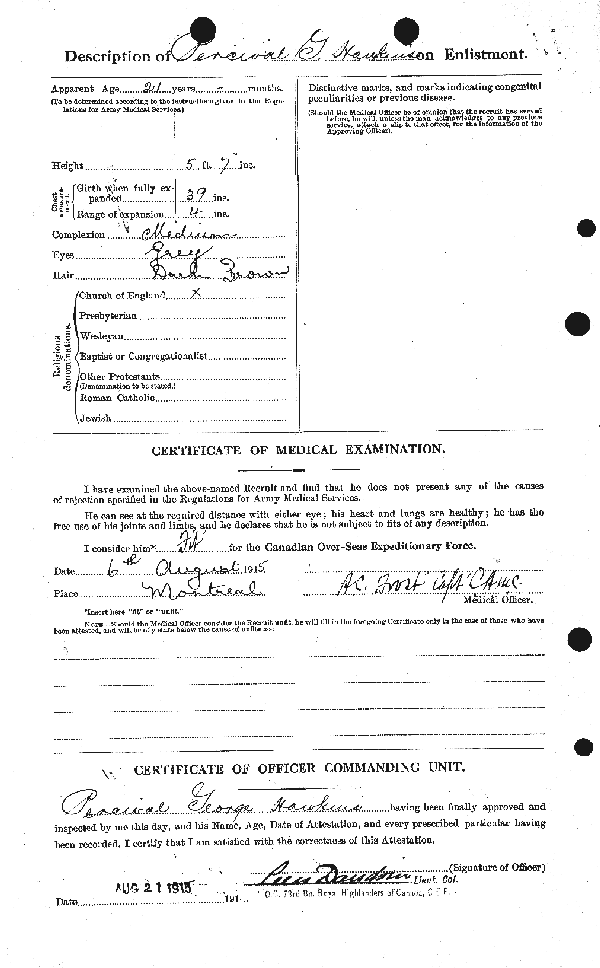 Description of Percival G Hawkins on Enlistment.
Apparent Age 21 years - months.
(To be determined according to the instructions given in the Regulations for Army Medical Services.)
Height 5 ft. 7 ins.
Chest measurement
Girth when fully expanded 39 ins.
Range of expansion 4 ins.
Complexion Medium
Eyes Grey
Hair Dark Brown
Religious denominations.
Church of England X
Presbyterian
Wesleyan
Baptist or Congregationalist
Other Protestants
(Denomination to be stated.)
Roman Catholic
Jewish
Distinctive marks, and marks indicating congenital
peculiarities or previous disease.
(Should the Medical Officer be of opinion that the recruit has served
before, he will, unless the man acknowledges to any previous
service, attach a slip to that effect, for the information of the
Approving Officer).
CERTIFICATE OF MEDICAL EXAMINATION.
I have examined the above-named Recruit and find that he does not present any of the causes
of rejection specified in the Regulations for Army Medical Services.
He can see at the required distance with either eye; his heart and lungs are healthy; he has the
free use of his joints and limbs, and he declares that he is not subject to fits of any description.
I consider him* Fit for the Canadian Over-Seas Expeditionary Force.
Date 6th August 1915
Place Montreal
A.C. Frost Capt C.A.M.C.
Medical Officer.
*Insert here "fit" or "unfit."
NOTE.—Should the Medical Officer consider the Recruit unfit, he will fill in the foregoing Certificate only in the case of those who have
been attested, and will briefly state below the cause of unfitness:
CERTIFICATE OF OFFICER COMMANDING UNIT.
Percival George Hawkins having been finally approved and
inspected by me this day, and his Name, Age, Date of Attestation, and every prescribed particular having
been recorded, I certify that I am satisfied with the correctness of this Attestation.
(Signature of Officer)
Davidson Lieut. Col.
O.C. 73rd Bn. Royal Highlanders of Canada, C.E.F.
Date AUG 21 1915 191